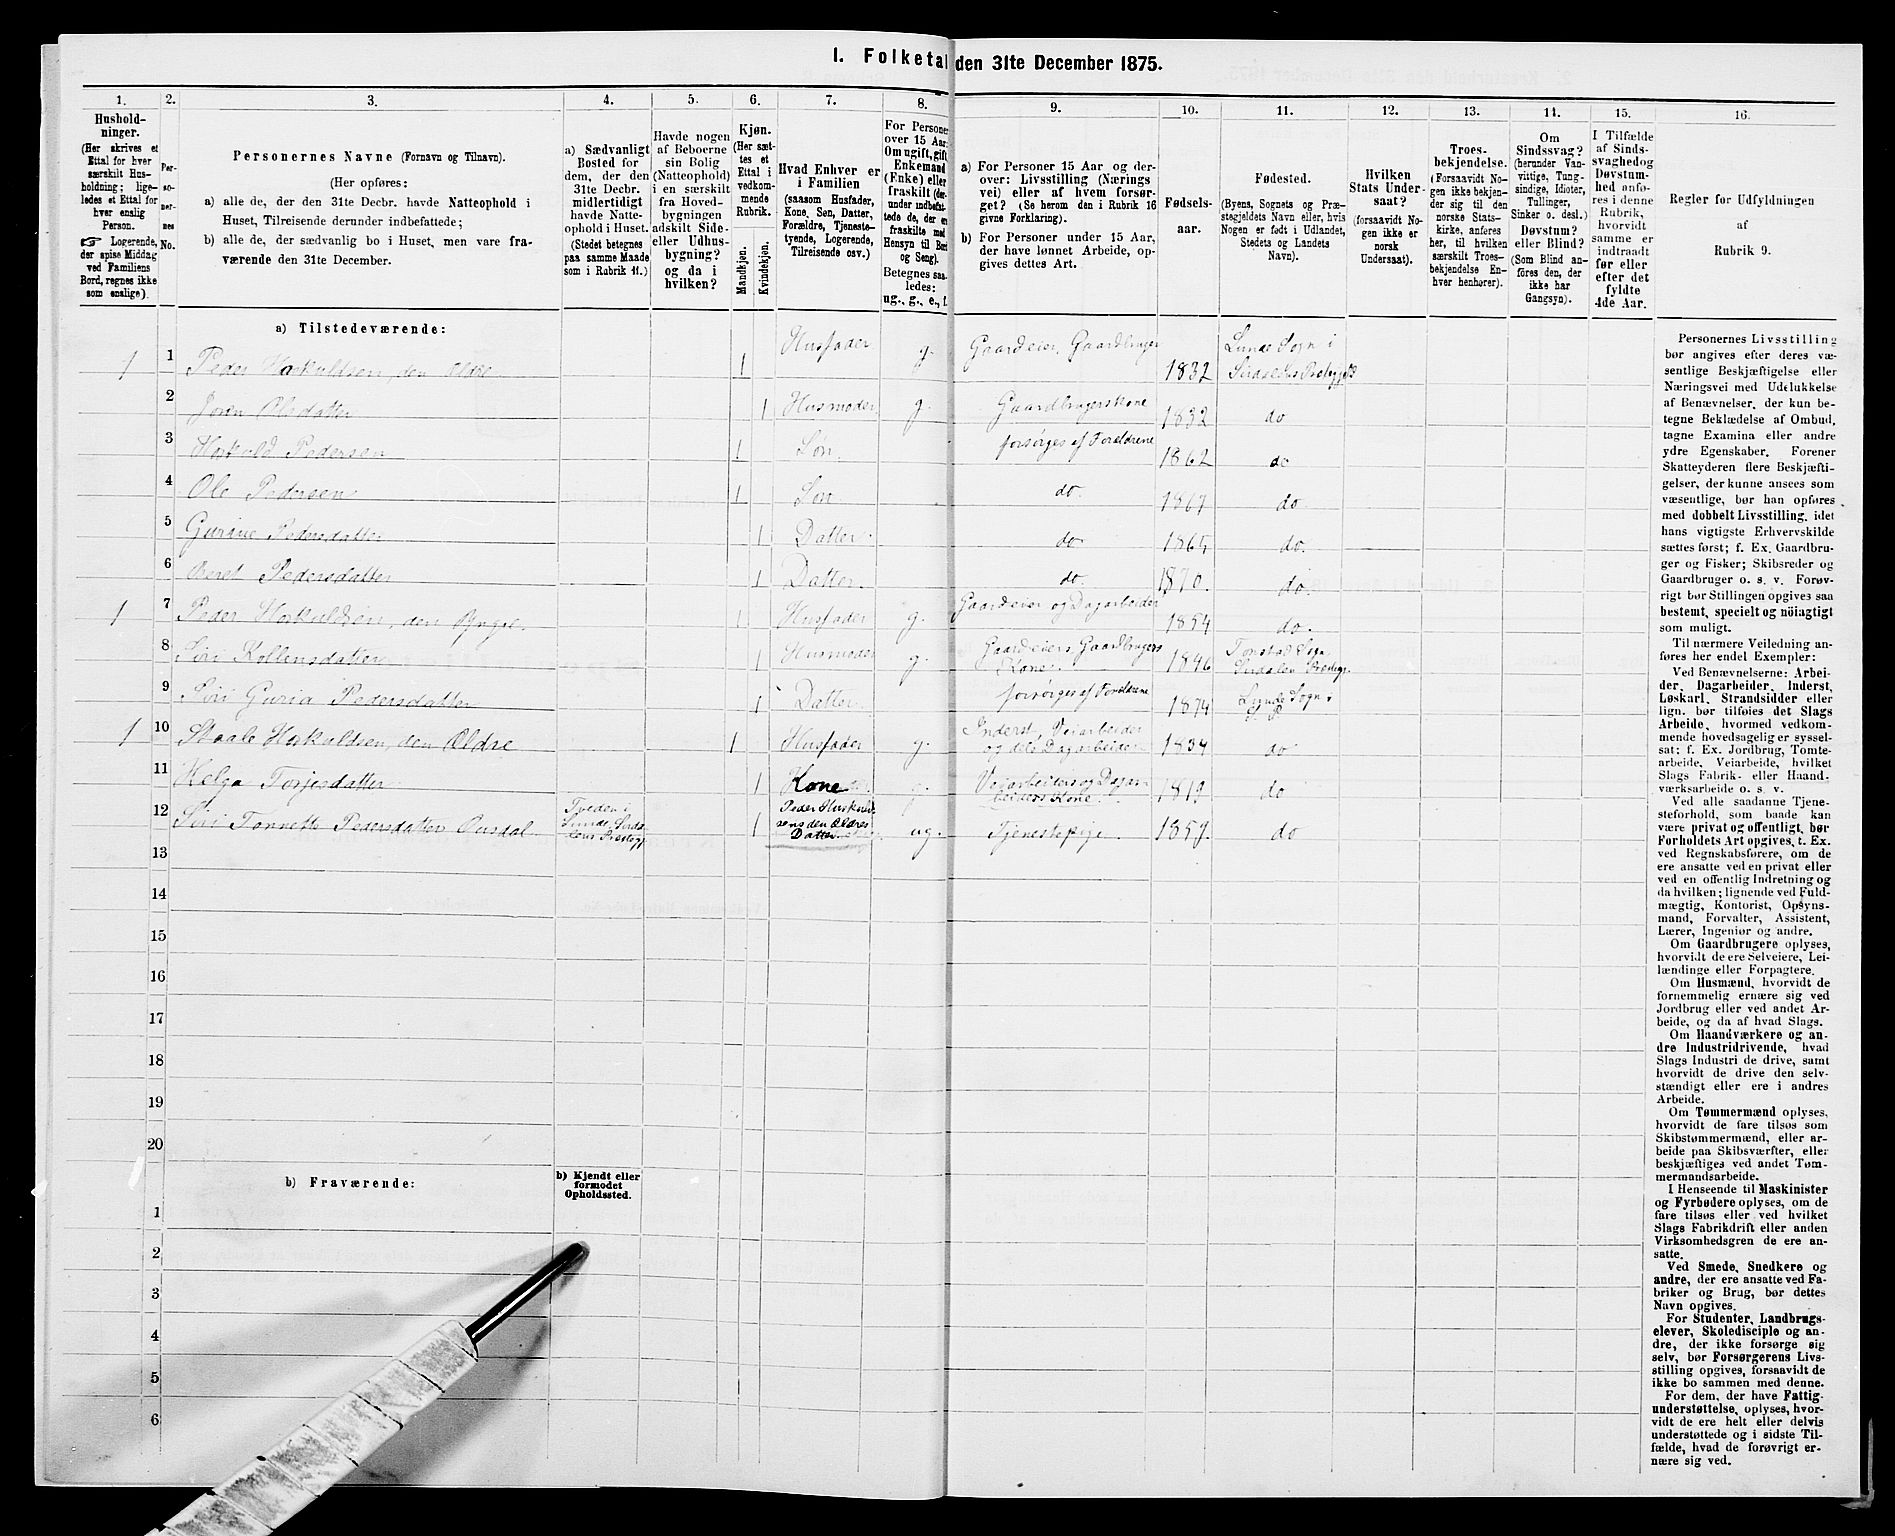 I. Folketal den 31te December 1875.
1.
Hushold-
ninger.
(Her skrives et
Ettal for hver
særskilt Hus-
holdning; lige-
ledes et Ettal for
hver enslig
Person.
Logerende,
der spise Middag
ved Familiens
Bord, regnes ikke
som enslige).
2.
Per-
so-
ner-
nes
No.
3.
Personernes Navne (Fornavn og Tilnavn).
(Her opføres:
a) alle de, der den 31te Decbr. havde Natteophold i
Huset, Tilreisende derunder indbefattede;
b) alle de, der sædvanlig bo i Huset, men vare fra-
værende den 31te December.
4.
a) Sædvanligt
Bosted for
dem, der den
31te Decbr.
midlertidigt
havde Natte-
ophold i Huset.
(Stedet betegnes
paa samme Maade
som i Rubrik 11.)
5.
Havde nogen
af Beboerne
sin Bolig
(Natteophold)
i en særskilt
fra Hoved-
bygningen
adskilt Side-
eller Udhus-
bygning?
og da i
hvilken?
6.
Kjøn.
(Her sæt-
tes et
Ettal i
vedkom-
mende
Rubrik.
Mandkjøn.
Kvindekjøn.
7.
Hvad Enhver er
i Familien
(saasom Husfader,
Kone, Søn, Datter,
Forældre, Tjeneste-
tyende, Logerende,
Tilreisende osv.)
8.
For Personer
over 15 Aar:
Om ugift, gift,
Enkemand
(Enke) eller
fraskilt
Betegnes saa-
ledes:
ug., g., e., f.
9.
a) For Personer 15 Aar og der-
over: Livsstilling (Nærings-
vei) eller af hvem forsør-
get? (Se herom den i Rubrik 16
givne Forklaring).
b) For Personer under 15 Aar,
der have lønnet Arbeide, op-
gives dettes Art.
10.
Fødsels-
aar.
11.
Fødested.
(Byens, Sognets og Præ-
stegjeldets Navn eller, hvis
Nogen er født i Udlandet,
Stedets og Landets
Navn).
12.
Hvilken
Stats Under-
saat?
(forsaavidt No-
gen ikke er
norsk
Undersaat).
13.
Troes-
bekjendelse.
(Forsaavidt No-
gen ikke bekjen-
der sig til den
norske Stats-
kirke, anføres
her, til hvilken
særskilt Troes-
bekjendelse En-
hver henhører).
14.
Om
Sindssvag?
(herunder Van-
vittige, Tung-
sindige, Idioter,
Tullinger,
Sinker o. desl.)
Døvstum?
eller Blind?
(Som Blind an-
føres den, der
ikke har
Gangsyn).
15.
I Tilfælde
af Sinds-
svaghed og
Døvstum-
hed anfø-
res i denne
Rubrik,
hvorvidt
samme er
indtraadt
før eller
efter det
fyldte
4de Aar.
16.
Regler for Udfyldningen
af
Rubrik 9.
a) Tilstedeværende:
1 1 Peder Hoskuldsen, den Ældre 1 Husfader g. Gaardeier, Gaardbruger 1832 Lunde Sogn i
Sirdalens Prstgjld
2 Joren Olsdatter 1 Husmoder g. Gaardbrugerskone 1832 do
3 Hoskuld Pedersen 1 Søn forsørges af Forældrene 1862 do
4 Ole Pedersen 1 Søn do. 1867 do.
5 Gurine Pedersdatter 1 Datter do 1865 do.
6 Beret Pedersdatter 1 Datter. do. 1870. do.
1 7 Peder Hoskuldsen, den Yngre. 1 Husfader g. Gaardeier og Dagarbeider 1854 do.
8 Siri Kollensdatter 1 Husmoder g. Gaardeiers, Gaardbrugers
Kone. 1846 Tonstad Sogn
Sirdalen Prstgj.
9 Siri Guria Pedersdatter 1 Datter forsørges af Forældrene 1874 Lunde Sogn i
S. P.
1 10 Staale Hoskuldsen, den Ældre 1 Husfader g. Inderst, Veiarbeider
og dels Dagarbeider 1834 do
11 Helga Torjesdatter 1 Kone g. Veiarbeiders og Dagar-
beiders Kone. 1819 do
12 Siri Tonnette Pedersdatter Ousdal Tveden i
Lunde, Sirda-
lens Prestegj. 1 Peder Huskuld-
sens den Ældres
Datter ug. Tjenestepige 1857. do
13
14
15
16
17
18
19
20
b) Fraværende:
b) Kjendt eller
formodet
Opholdssted.
1
2
3
4
5
6
Personernes Livsstilling
bør angives efter deres væ-
sentlige Beskjæftigelse eller
Næringsvei med Udelukkelse
af Benævnelser, der kun be-
tegne Beklædelse af Ombud,
tagne Examina eller andre
ydre Egenskaber. Forener
Skatteyderen flere Beskjæfti-
gelser, der kunne ansees som
væsentlige, bør han opføres
med dobbelt Livsstilling, idet
hans vigtigste Erhvervskilde
sættes først; f. Ex. Gaardbru-
ger og Fisker; Skibsreder og
Gaardbruger o. s. v. Forøv-
rigt bør Stillingen opgives saa
bestemt, specielt og nöiagtigt
som muligt.
Til nærmere Veiledning an-
føres her endel Exempler:
Ved Benævnelserne: Arbei-
der, Dagarbeider, Inderst,
Løskarl, Strandsidder eller
lign. bør tilføies det Slags
Arbeide, hvormed vedkom-
mende hovedsagelig er syssel-
sat; f. Ex. Jordbrug, Tomte-
arbeide, Veiarbeide, hvilket
Slags Fabrik- eller Haand-
værksarbeide o. s. v.
Ved alle saadanne Tjene-
steforhold, som baade kan
være privat og offentligt, bør
Forholdets Art opgives, t. Ex.
ved Regnskabsførere, om de
ere ansatte ved en privat eller
ved en offentlig Indretning og
da hvilken; lignende ved Fuld-
mægtig, Kontorist, Opsyns-
mand, Forvalter, Assistent,
Lærer, Ingeniør og andre.
Om Gaardbrugere oplyses,
hvorvidt de ere Selveiere, Lei-
lændinge eller Forpagtere.
Om Husmænd, hvorvidt de
fornemmelig ernære sig ved
Jordbrug eller ved andet Ar-
beide, og da af hvad Slags.
Om Haandværkere og an-
dre Industridrivende, hvad
Slags Industri de drive, samt
hvorvidt de drive den selv-
stændigt eller ere i andres
Arbeide.
Om Tømmermænd oplyses,
hvorvidt de fare tilsøs som
Skibstømmermænd, eller ar-
beide paa Skibsværfter, eller
beskjæftiges ved andet Tøm-
mermandsarbeide.
I Henseende til Maskinister
og Fyrbødere oplyses, om de
fare tilsøs eller ved hvilket
Slags Fabrikdrift eller anden
Virksomhedsgren de ere an-
satte.
Ved Smede, Snedkere og
andre, der ere ansatte ved Fa-
briker og Brug, bør dettes
Navn opgives.
For Studenter, Landbrugs-
elever, Skoledisciple og an-
dre, der ikke forsørge sig
selv, bør Forsørgerens Livs-
stilling opgives, forsaavidt de
ikke bo sammen med denne.
For dem, der have Fattig-
understøttelse, oplyses, hvor-
vidt de ere helt eller delvis
understøttede og i sidste Til-
fælde, hvad de forøvrigt er-
nære sig ved.